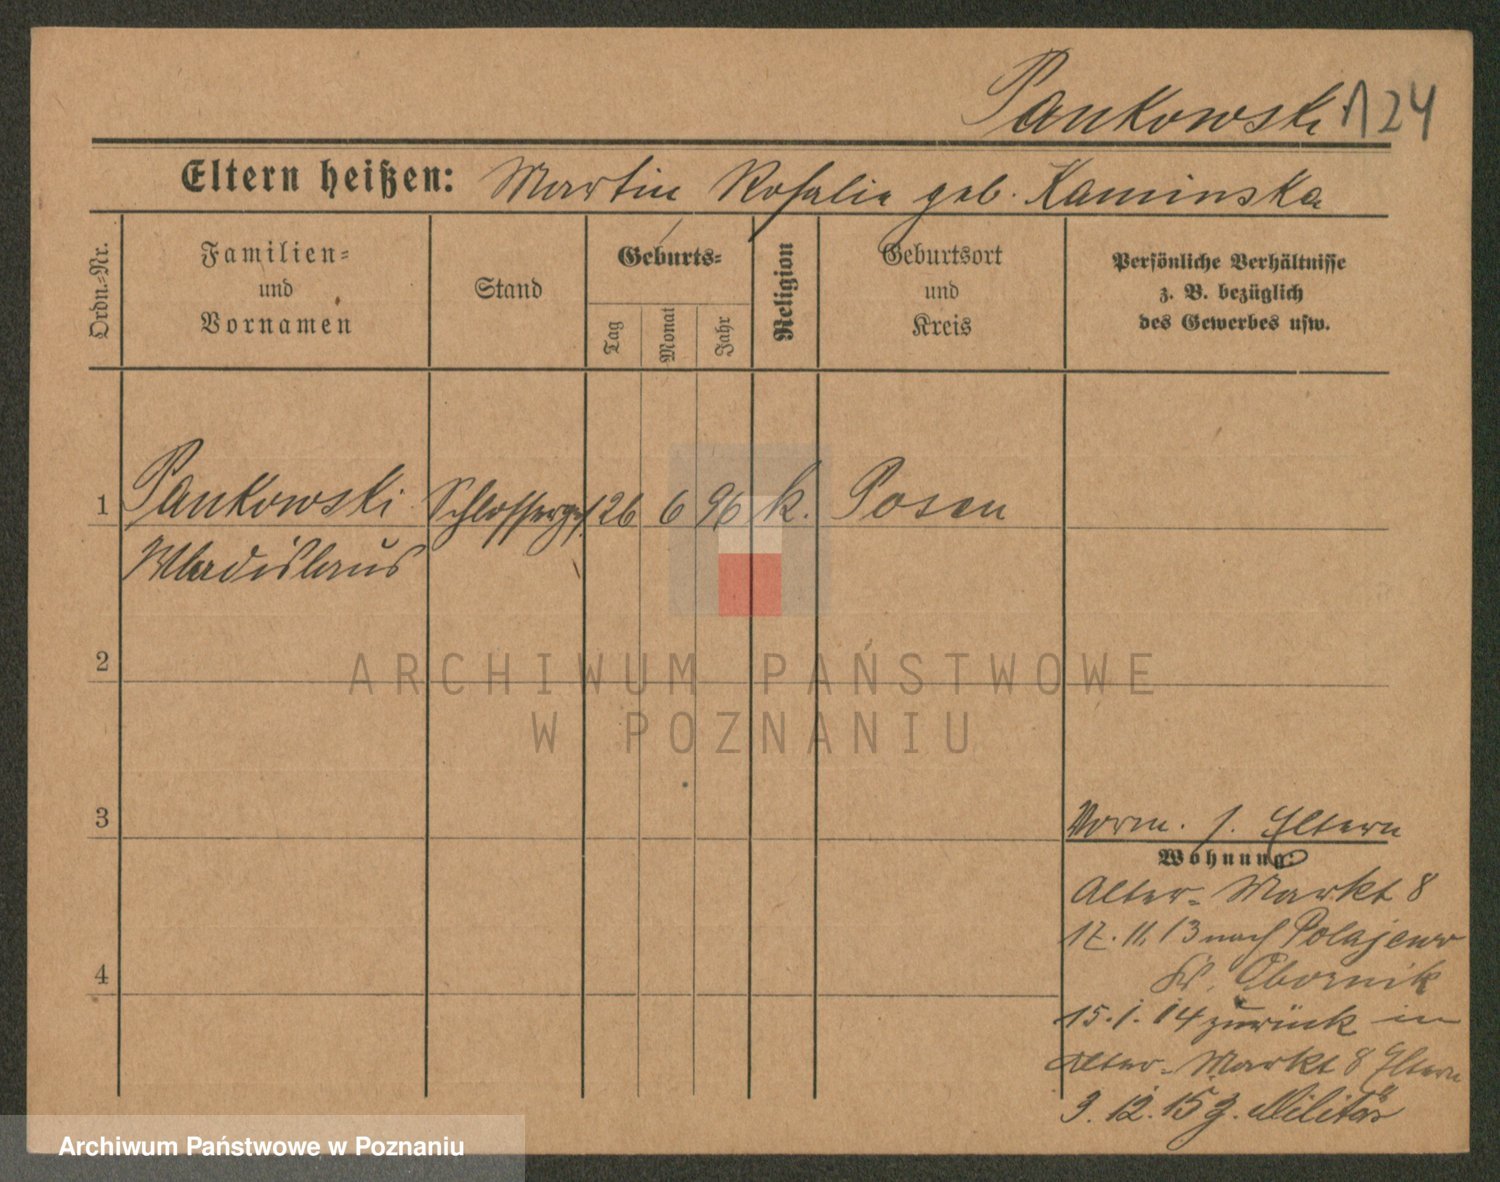 Pankowski 124
Eltern heißen: Martin Rosalie geb. Kaminska
Ordn.-Nr.
Familien-
und
Vornamen
Stand
Geburts-
Tag
Monat
Jahr
Religion
Geburtsort
und
Kreis
Persönliche Verhältnisse
z. B. bezüglich
des Gewerbes usw.
1 Pankowski Schlosserges. 26 6 96 k. Posen
Wladislaus
2
3
4
Vorm. s. Eltern
Wohnung:
Alter-Markt 8
17.11.13 nach Polajewo
Kr. Obornik
15.1.14 zurück in
Alter-Markt 8 Eltern
3.12.15 z. Militär
ARCHIWUM PAŃSTWOWE
W POZNANIU
Archiwum Państwowe w Poznaniu